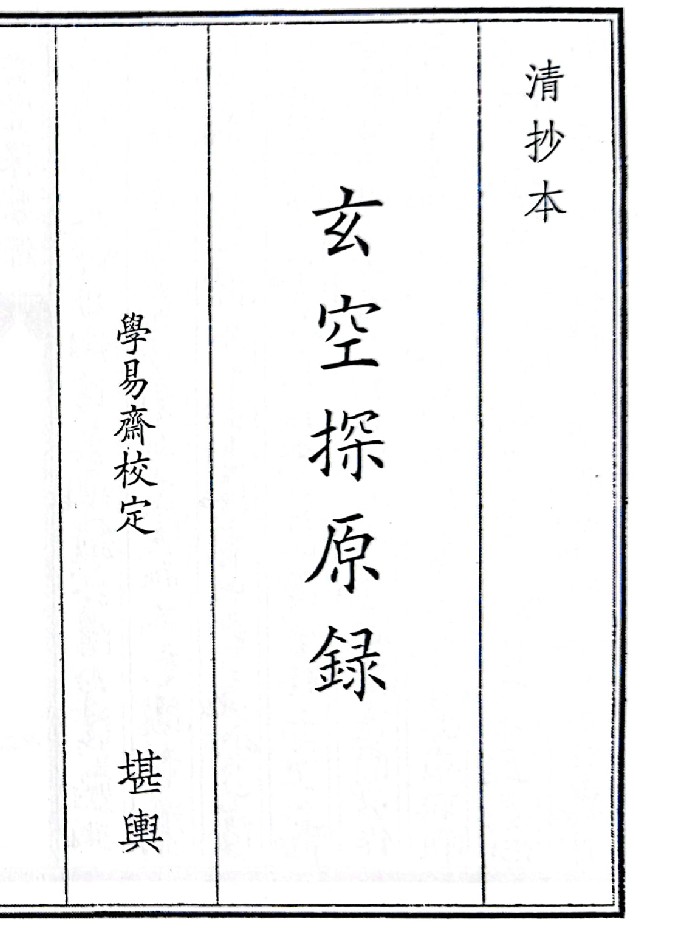 清抄本
玄空探原録
學易齋校定
堪輿